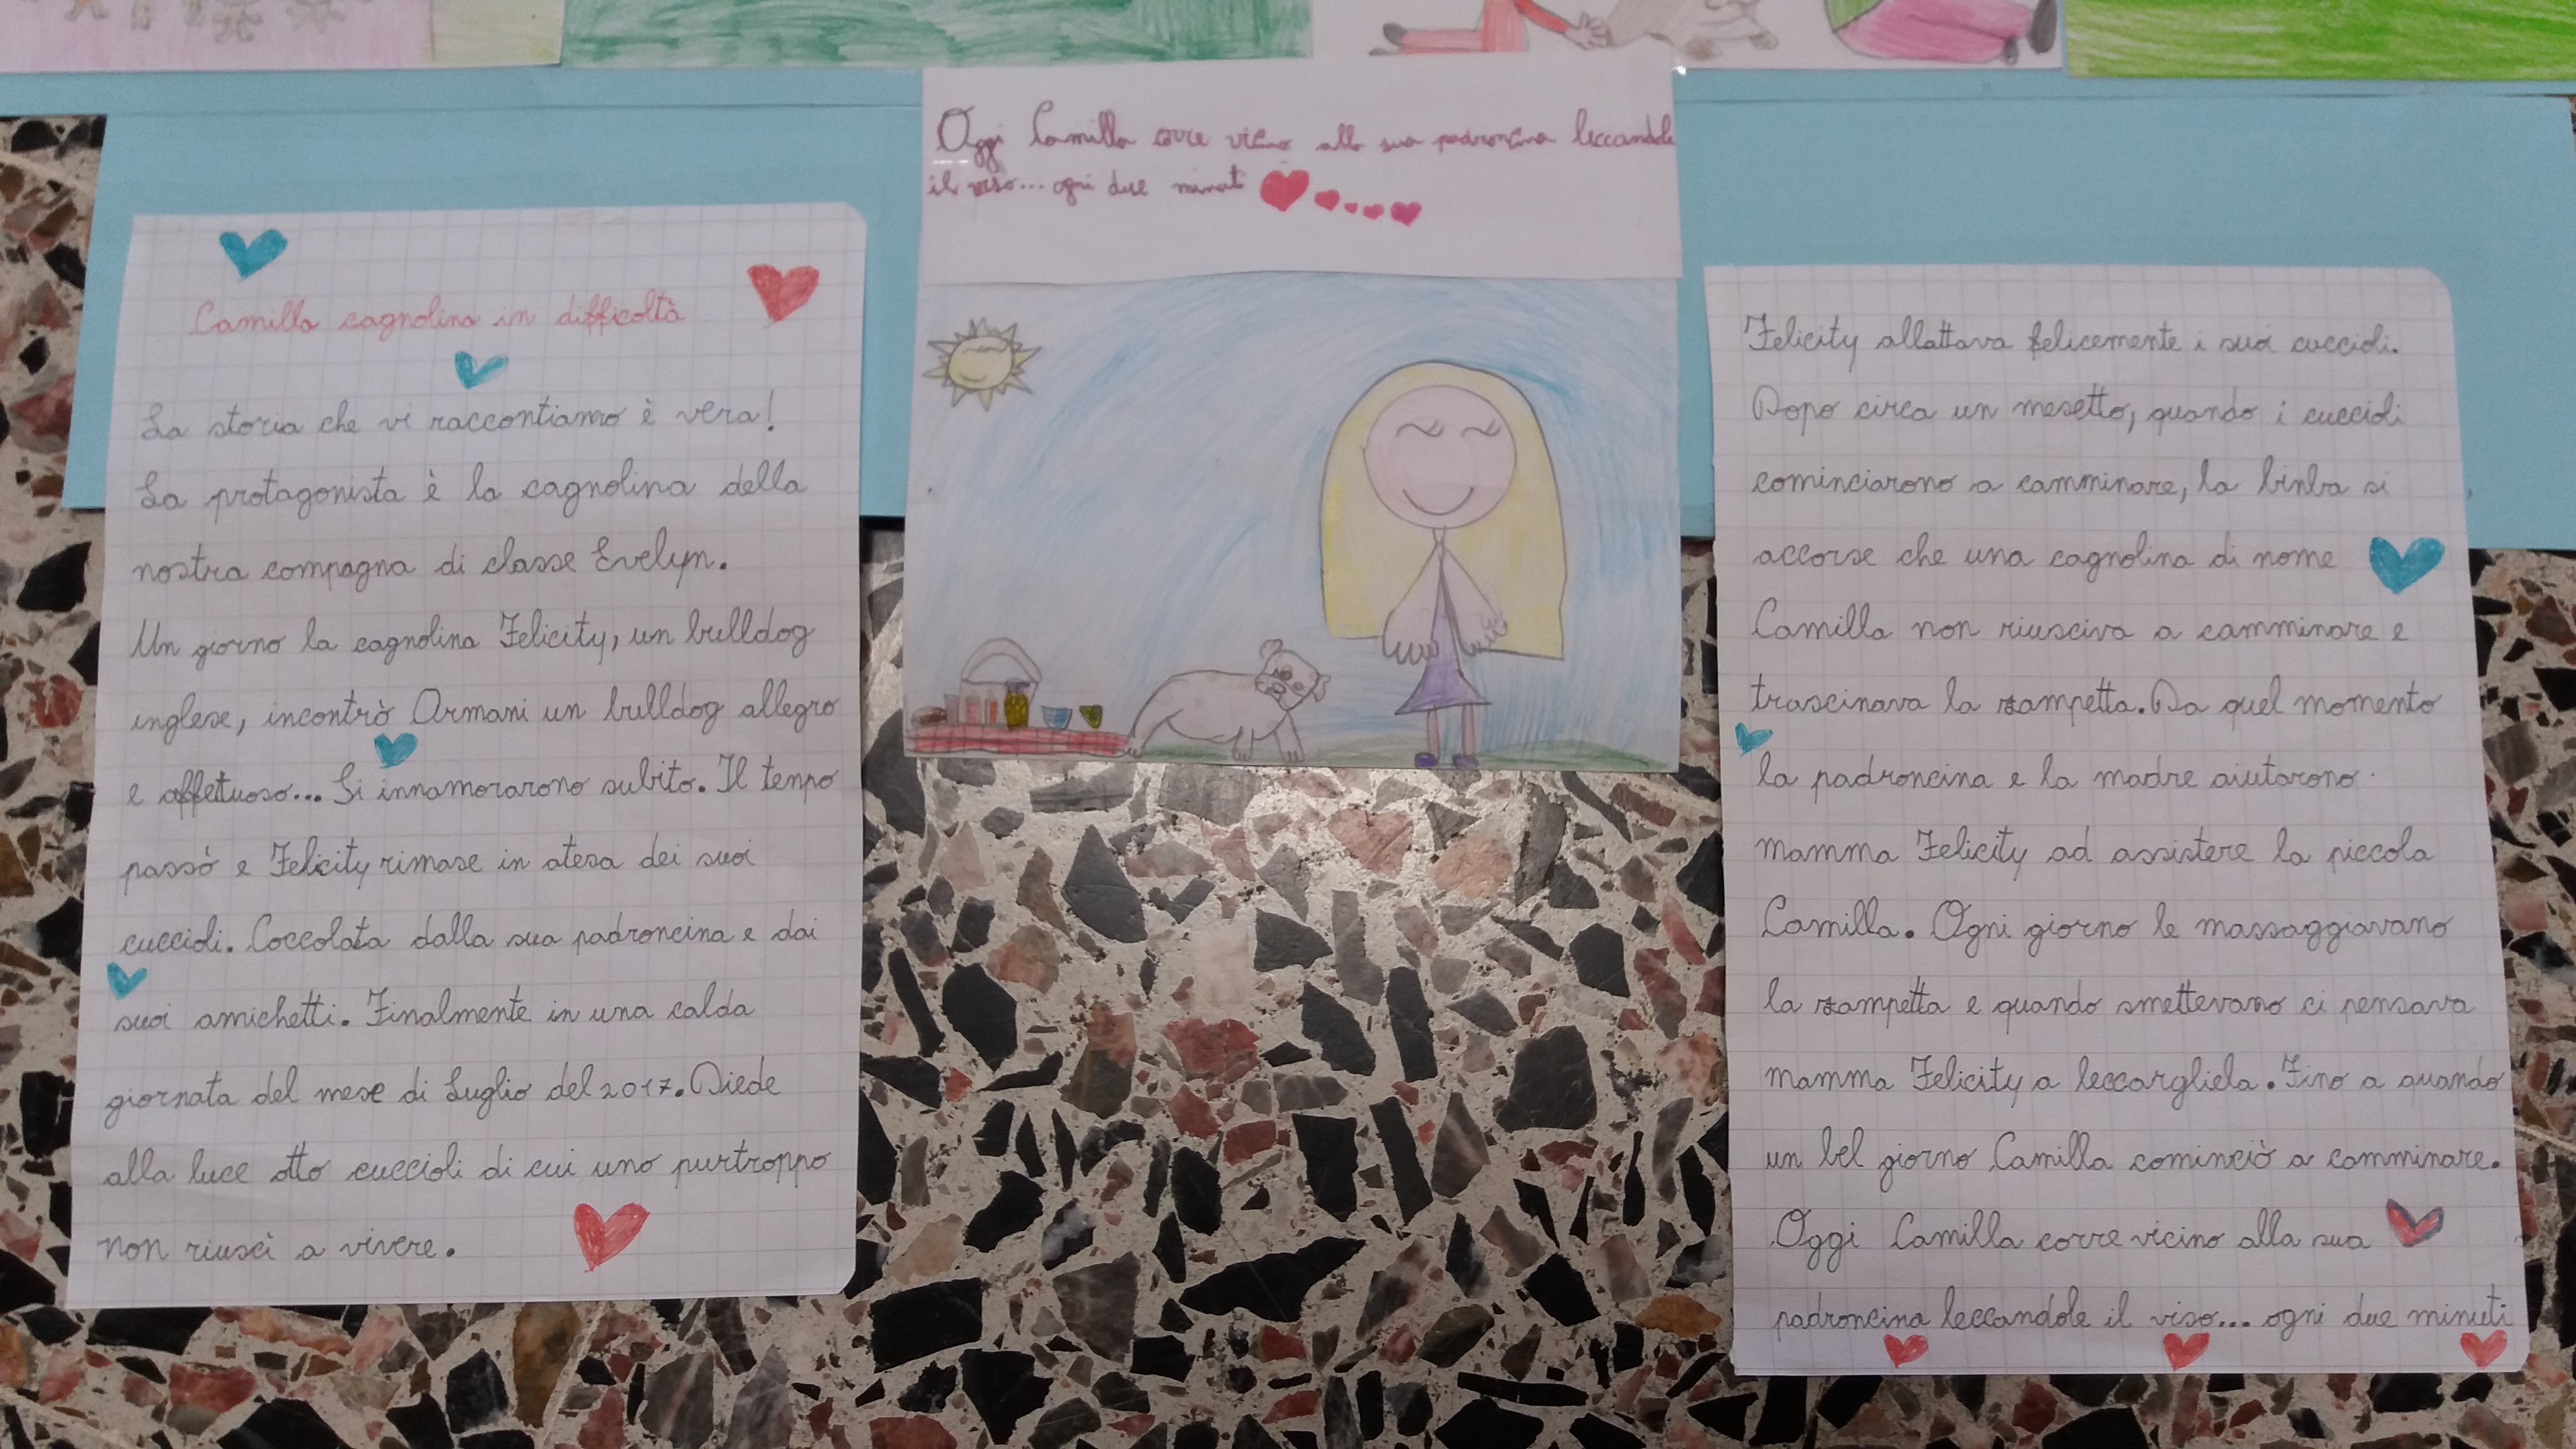 Camilla cagnolina in difficoltà
La storia che vi raccontiamo è vera!
La protagonista è la cagnolina della
nostra compagna di classe Evelyn.
Un giorno la cagnolina Felicity, un bulldog
inglese, incontrò Armani un bulldog allegro
e affettuoso... Si innamorarono subito. Il tenpo
passò e Felicity rimase in atesa dei suoi
cuccioli. Coccolata dalla sua padroncina e dai
suoi amichetti. Finalmente in una calda
giornata del mese di Luglio del 2017. Diede
alla luce otto cuccioli di cui uno purtroppo
non riuscì a vivere.
Oggi Camilla corre vicino alla sua padroncina leccandole
il viso... ogni due minuti
Felicity allattava felicemente i suoi cuccioli.
Dopo circa un mesetto, quando i cuccioli
cominciarono a camminare, la binba si
accorse che una cagnolina di nome
Camilla non riusciva a camminare e
trascinava la zampetta. Da quel momento
la padroncina e la madre aiutarono
mamma Felicity ad assistere la piccola
Camilla. Ogni giorno le massaggiavano
la zampetta e quando smettevano ci pensava
mamma Felicity a leccargliela. Fino a quando
un bel giorno Camilla cominciò a camminare.
Oggi Camilla corre vicino alla sua
padroncina leccandole il viso... ogni due minuti